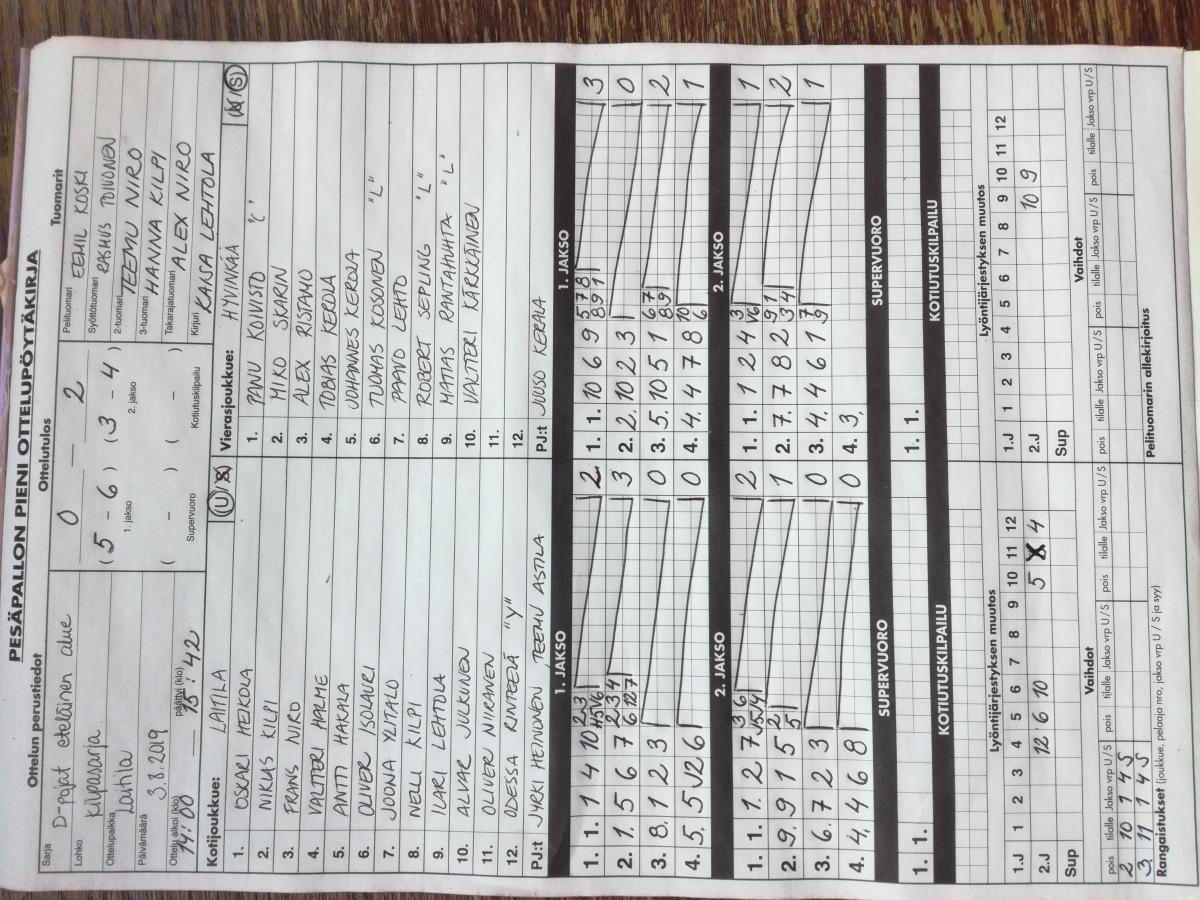 PESÄPALLON PIENI OTTELUPÖYTÄKIRJA
Ottelun perustiedot
Ottelutulos
Tuomarit
Sarja
D-pojat eteläinen alue
Lohko
Kilpasarja
Ottelupaikka
Laitila
Päivämäärä
3.8.2019
Ottelu alkoi (klo)
14:00
päättyi (klo)
15:42
0 — 2
(5 - 6) (3 - 4)
1. jakso
2. jakso
( - ) ( - )
Supervuoro
Kotiutuskilpailu
Pelituomari EEMIL KOSKI
Syöttötuomari RASMUS TOIVONEN
2-tuomari TEEMU NIRO
3-tuomari HANNA KILPI
Takarajatuomari ALEX NIRO
Kirjuri KAISA LEHTOLA
Kotijoukkue: LAITILA U/S
1. OSKARI HEIKOLA
2. NIKLAS KILPI
3. FRANS NIRO
4. VALTTERI HALME
5. ANTTI HAKALA
6. OLIVER ISOLAURI
7. JOONA YLITALO
8. NELLI KILPI
9. ILARI LEHTOLA
10. ALVAR JULKUNEN
11. OLIVER NIIRANEN
12. ODESSA RINTEELÄ "Y"
PJ:t JYRKI HEINONEN, TEEMU ASTILA
Vierasjoukkue: HYVINKÄÄ U/S
1. PANU KOIVISTO "C"
2. MIKO SKARIN
3. ALEX RISTAMO
4. TOBIAS KEROLA
5. JOHANNES KEROLA
6. TUOMAS KOSONEN "L"
7. PAAVO LEHTO
8. ROBERT SEPLING "L"
9. MATIAS RANTAHUHTA "L"
10. VALTTERI KÄRKKÄINEN
11.
12.
PJ:t JUUSO KERALA
1. JAKSO
1. 1. 1 4 10 2
2. 1. 5 6 7 3
3. 8. 1 2 3 0
4. 5. 5 J2 6 0
1. JAKSO
1. 1. 10 6 9 3
2. 2. 10 2 3 0
3. 5. 10 5 1 2
4. 4. 4 7 8 1
2. JAKSO
1. 1. 1 2 7 2
2. 9. 9 1 5 1
3. 6. 7 2 3 0
4. 4. 4 6 8 0
2. JAKSO
1. 1. 1 2 4 1
2. 7. 7 8 2 2
3. 4. 4 6 1 1
4. 3.
SUPERVUORO
1. 1.
SUPERVUORO
1. 1.
KOTIUTUSKILPAILU
KOTIUTUSKILPAILU
Lyöntijärjestyksen muutos
1.J 1 2 3 4 5 6 7 8 9 10 11 12
2.J 12 6 10 5 4
Sup
Lyöntijärjestyksen muutos
1.J 1 2 3 4 5 6 7 8 9 10 11 12
2.J 10 9
Sup
Vaihdot
pois tilalle Jakso vrp U/S pois tilalle Jakso vrp U/S pois tilalle Jakso vrp U/S
2 10 1 4 S
3 11 1 4 S
Vaihdot
pois tilalle Jakso vrp U/S pois tilalle Jakso vrp U/S pois tilalle Jakso vrp U/S
Rangaistukset (joukkue, pelaaja nro, jakso vrp U / S ja syy)
Pelituomarin allekirjoitus